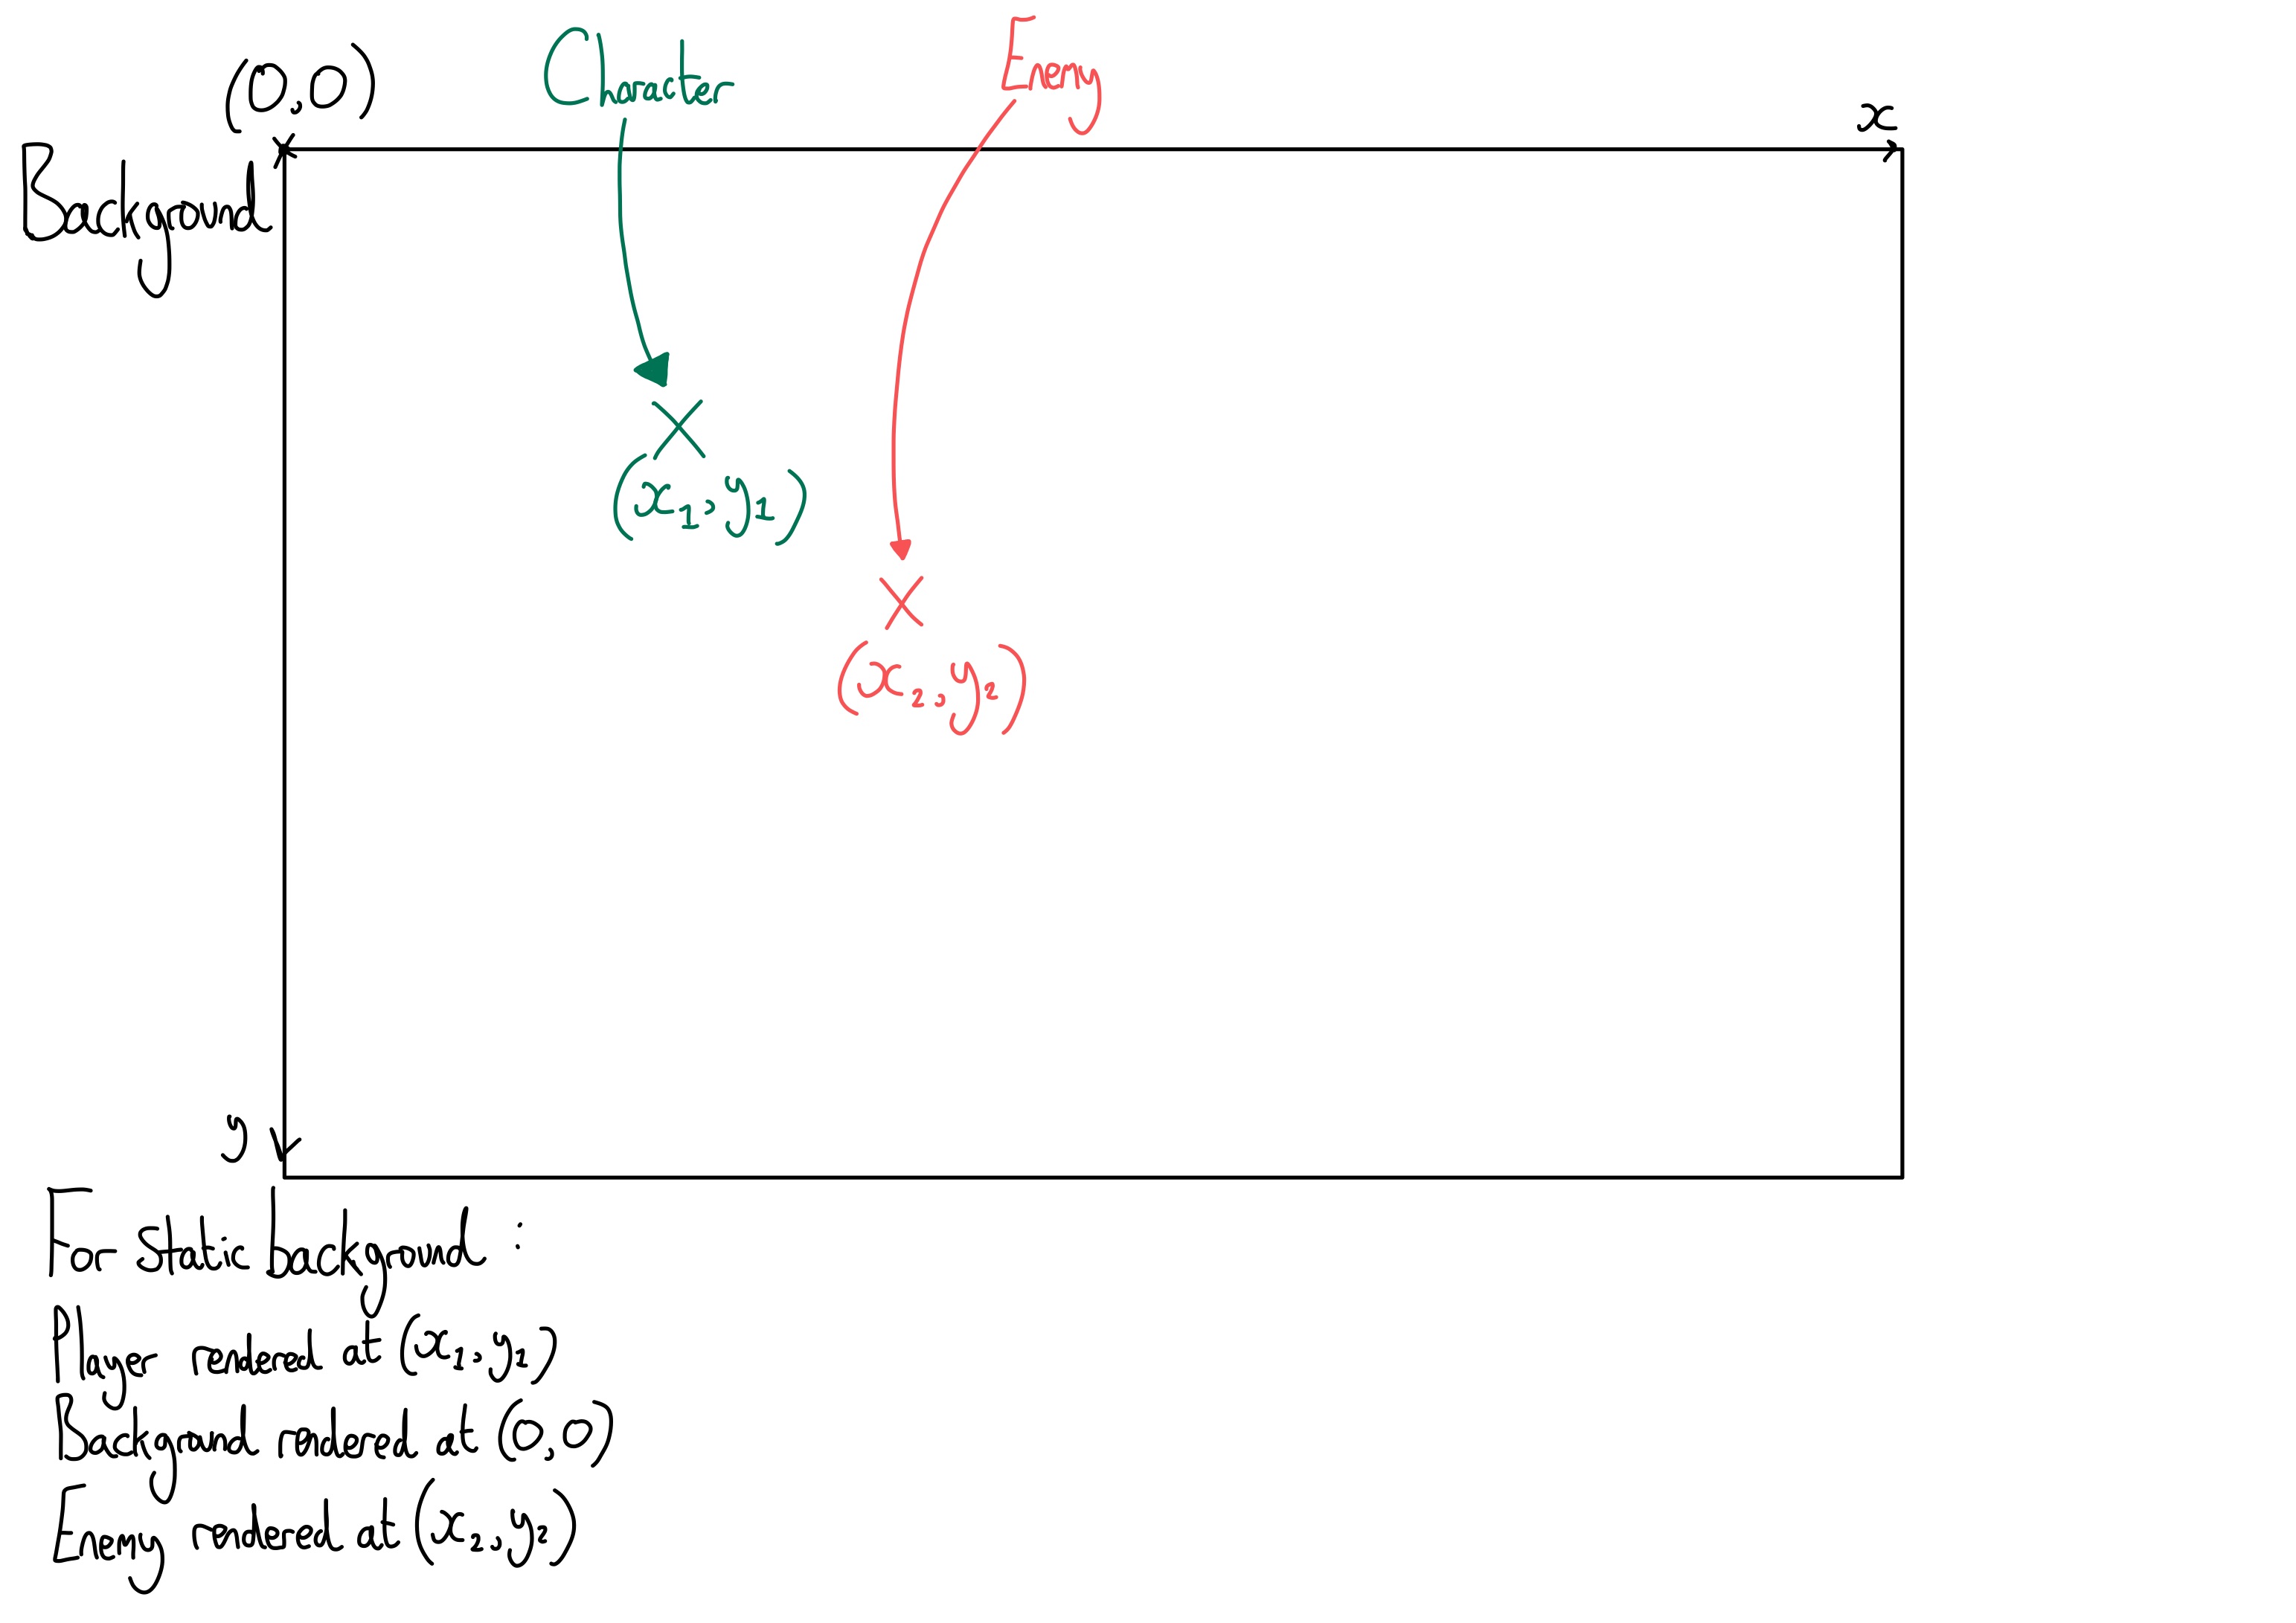 (0,0)
Character
Enemy
x
Background
(x₁,y₁)
(x₂,y₂)
y
For static background :
Player rendered at (x₁,y₁)
Background rendered at (0,0)
Enemy rendered at (x₂,y₂)